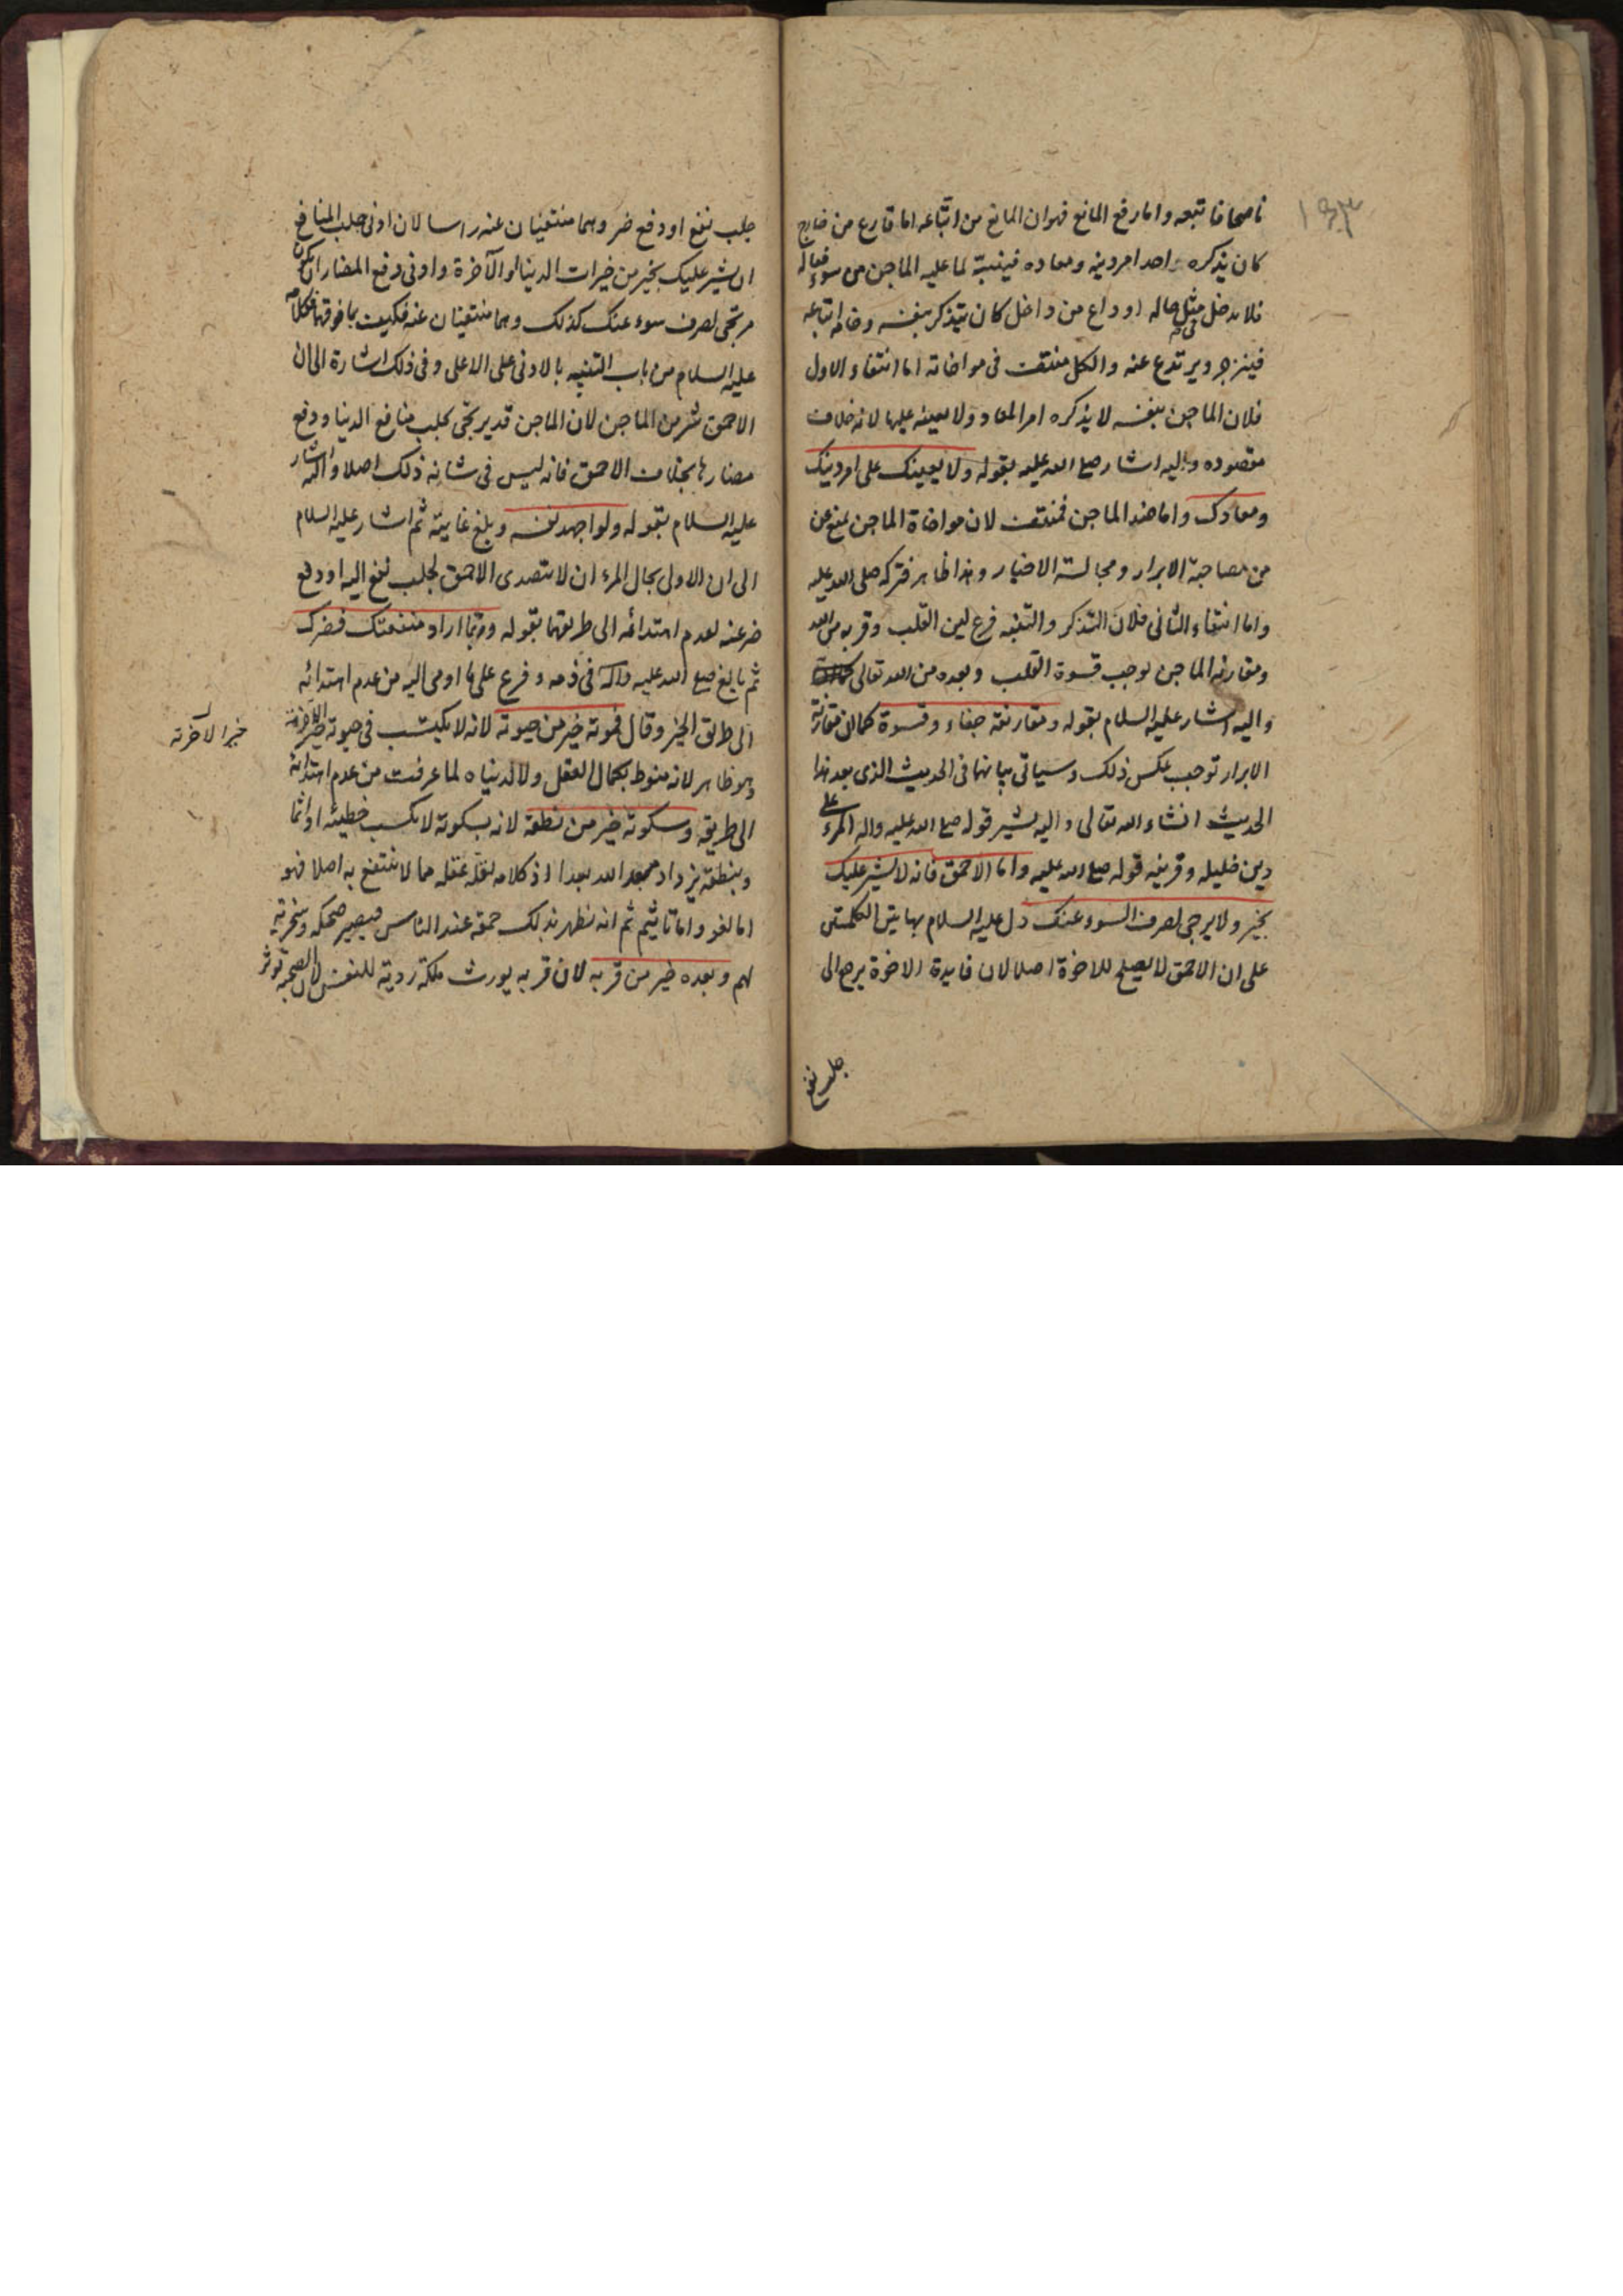 ناصحا فاتبعه واما رفع المانع فهو ان المانع من اتباعه اما قارع من خارج
كان يذكره احد امر دينه ومعاده فينبه لما عليه الماجن من سوء فعاله
فلا يدخل في مثل حاله او داع من داخل كان يتذكر بنفسه وخامة اتباعه
فينزجر ويرتدع عنه والكل منتف في مواخاته اما انتفاء الاول
فلان الماجن بنفسه لا يذكره امر المعاد ولا يعينه عليها لانه خلاف
مقصوده واليه اشار صلع الله عليه بقوله ولا يعينك على امر دينك
ومعادك واما ضد الماجن فمنتف لان مواخاة الماجن تمنع عن
من مصاحبة الابرار ومجالسة الاخيار وهذا ظاهر فتركه صلى الله عليه
واما انتفاء الثاني فلان التذكر والتنبه فرع لين القلب وقربه من الله
ومقارنة الماجن يوجب قسوة القلب وبعده من الله تعالى
واليه اشار عليه السلام بقوله ومقارنته جفاء وقسوة كما ان مقارنة
الابرار توجب عكس ذلك وسياتي بيانها في الحديث الذي بعد هذا
الحديث انشاء الله تعالى واليه يشير قوله صلع الله عليه واله المرء على
دين خليله وقرينه قوله صلع الله عليه واما الاحمق فانه لا يشير عليك
بخير ولا يرجى لصرف السوء عنك دل عليه السلام بهاتين الكلمتين
على ان الاحمق لا يصلح للاخوة اصلا لان فايدة الاخوة يرجع الى
جلب نفع
جلب نفع او دفع ضر وهما منتفيان عنه راسا لان ادنى جلب المنافع
ان يشير عليك بخير من خيرات الدنيا او الآخرة وادنى دفع المضار ان يكون
مرتجى لصرف سوء عنك كذلك وهما منتفيان عنه فكيف بما فوقهما فكلامه
عليه السلام من باب التنبيه بالادنى على الاعلى وفي ذلك اشارة الى ان
الاحمق شر من الماجن لان الماجن قد يرتجى لجلب منافع الدنيا ودفع
مضارها بخلاف الاحمق فانه ليس في شانه ذلك اصلا واليه اشار
عليه السلام بقوله ولو اجهد نفسه وبلغ غايته ثم اشار عليه السلام
الى ان الاولى بحال المرء ان لا يتصدى الاحمق لجلب نفع اليه او دفع
ضر عنه لعدم اهتدائه الى طريقهما بقوله وربما اراد منفعتك فضرك
ثم بالغ صلع الله عليه واله في ذمه وفرع على ما اومى اليه من عدم اهتدائه
الى طريق الخير وقال فموته خير من حيوته لانه لا يكتسب في حيوته خير الآخرة
وهو ظاهر لانه منوط بكمال العقل ولا لدنياه لما عرفت من عدم اهتدائه
الى طريقه وسكوته خير من نطقه لانه بسكوته لا يكسب خطيئة او اثما
وبنطقه يزداد من الله بعدا اذ كلامه لقلة عقله مما لا ينتفع به اصلا فهو
اما لغو واما تاثيم ثم انه يظهر بذلك حمقه عند الناس فيصير ضحكة وسخرية
لهم وبعده خير من قربه لان قربه يورث ملكة ردية للنفس لان الصحبة توثر
خيرا لآخرته